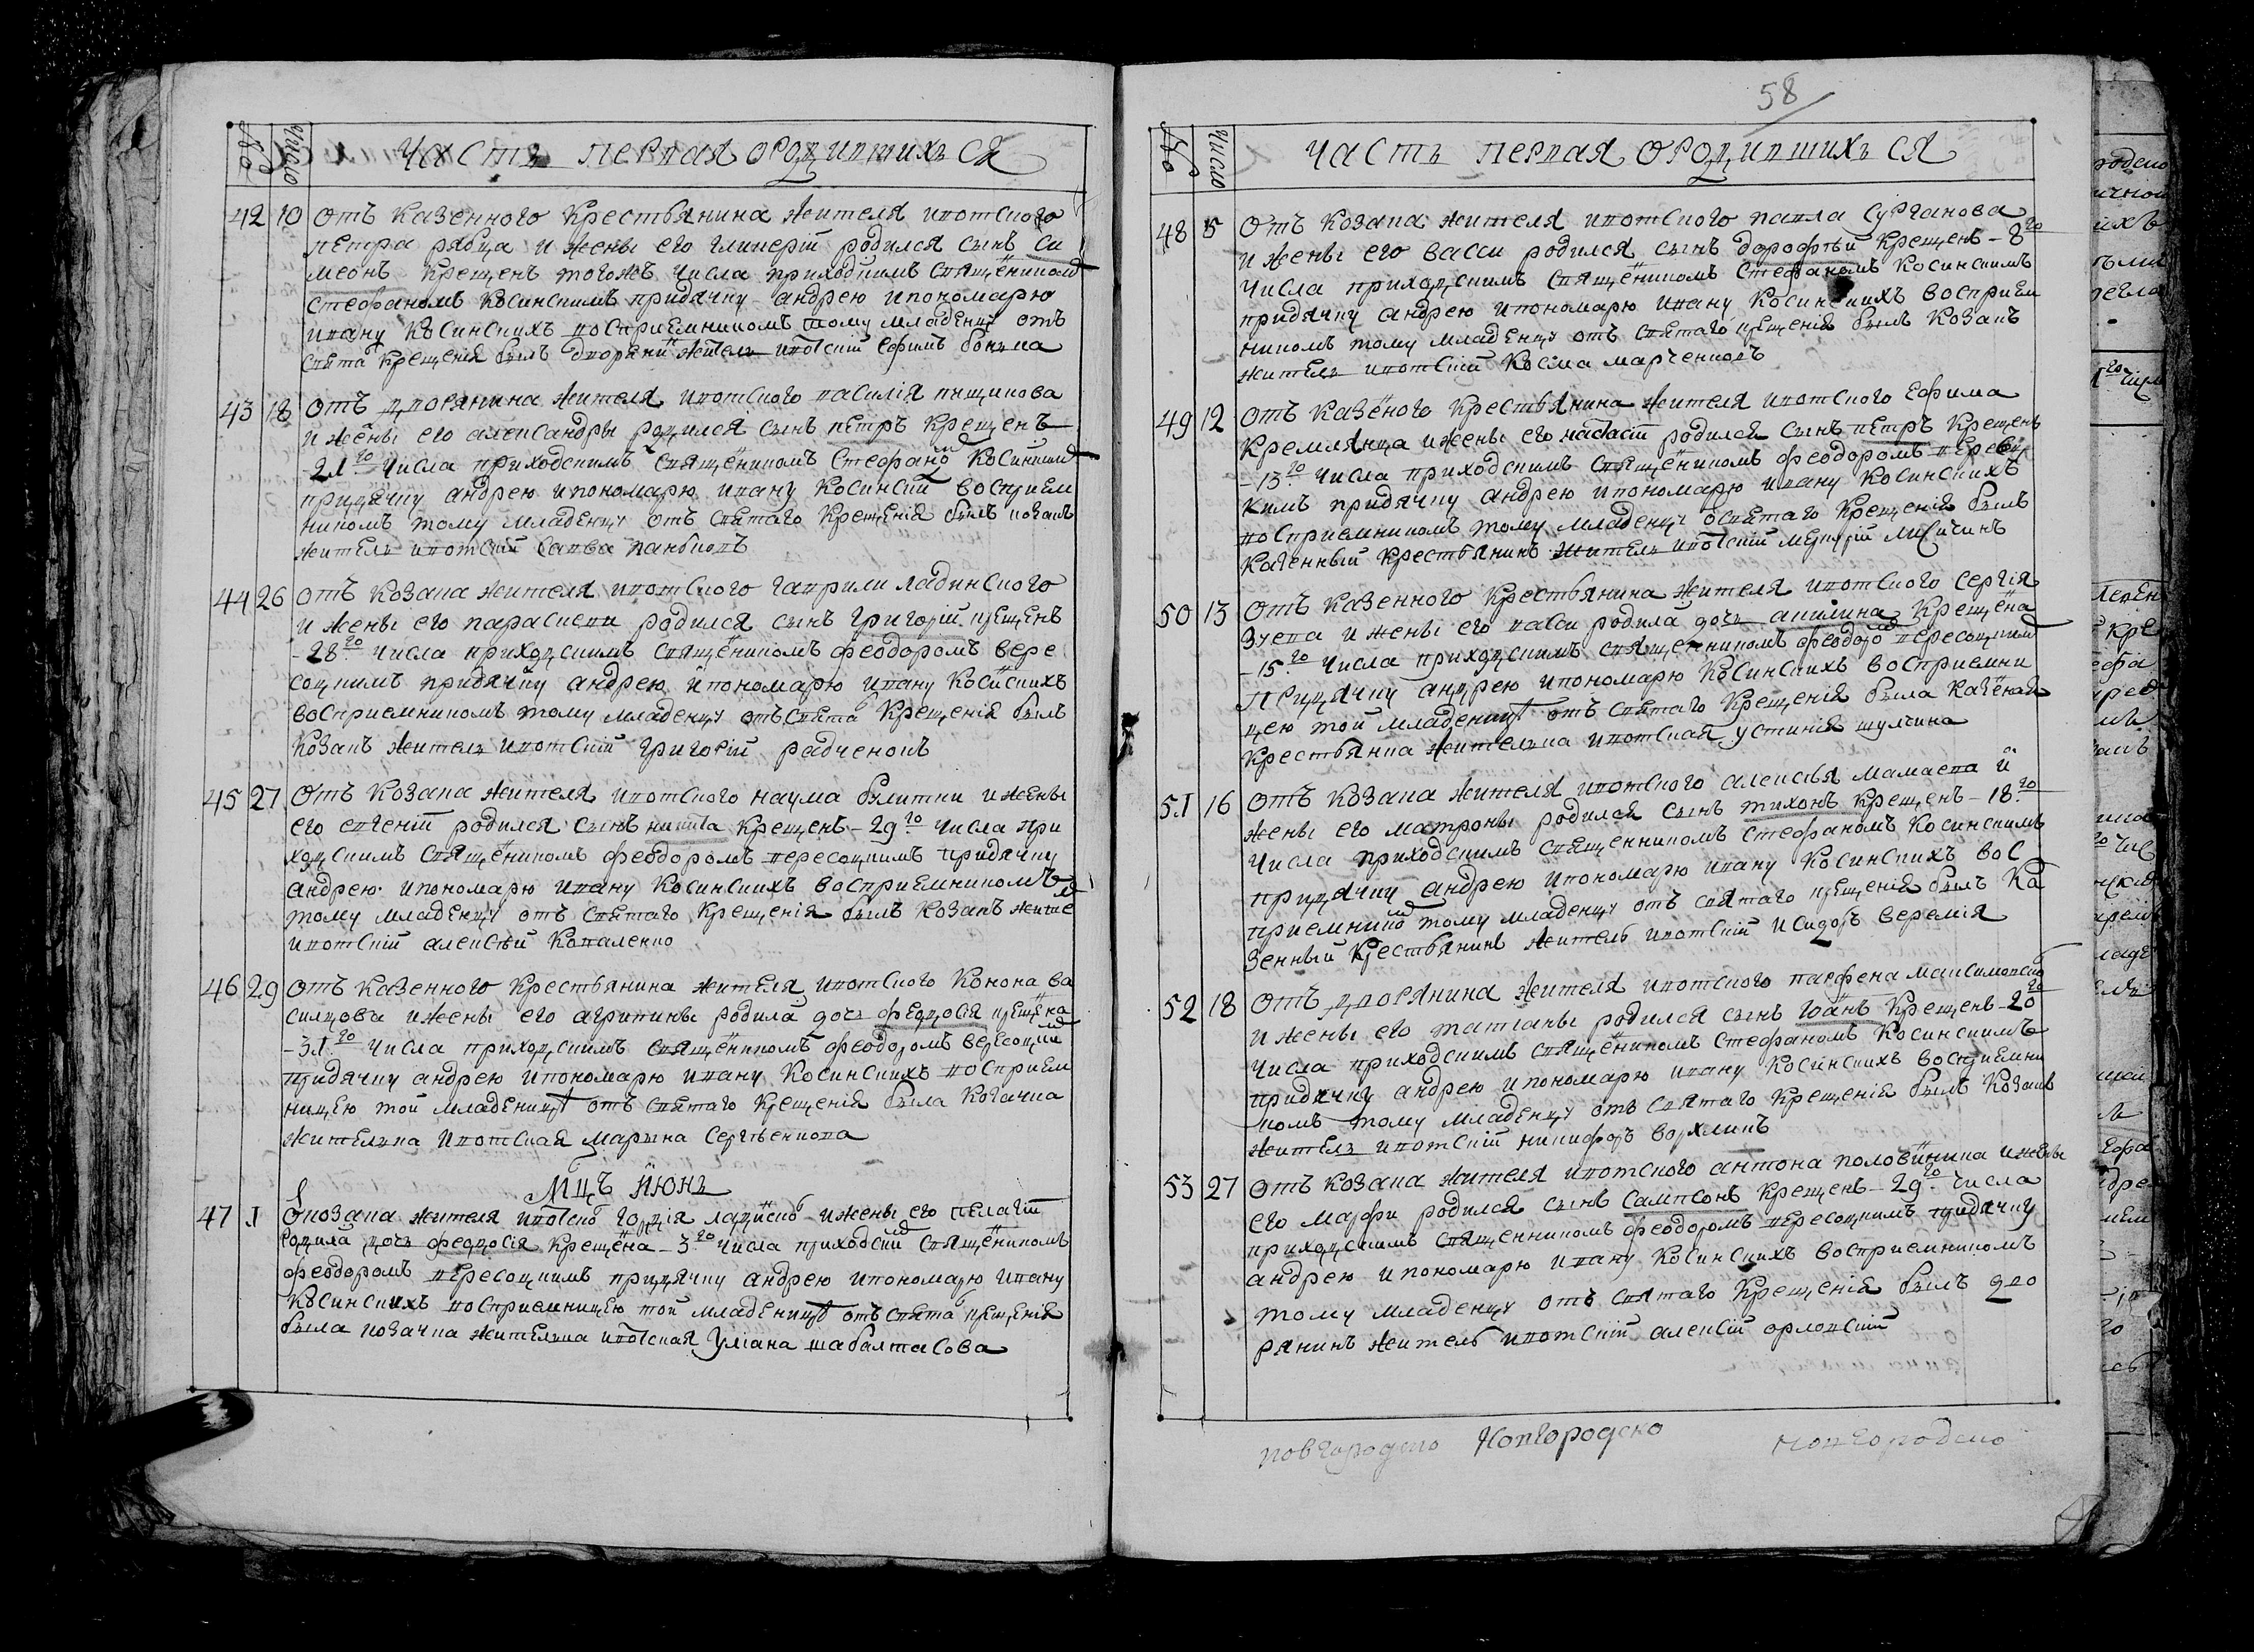 №
Число
Часть первая о родившихъ ся
42 10 Отъ казенного крестьянина жителя ивотского
петра рябца и жены его гликеріи родился сынъ си
меонъ крещенъ тогожъ числа приходскимъ священником
стефаномъ косинскимъ придячку андрею ипономарю
ивану косинскихъ восприемникомъ тому младенцу отъ
свята крещенія былъ дворянин житель ивотскій ефимъ
43 18 Отъ дворянина жителя ивотского василія пищикова
и жены его александры родился сынъ петръ крещенъ
-21го числа приходскимъ священикомъ стефаном косинским
придячку андрею ипономарю ивану косинскій восприем
никомъ тому младенцу отъ святаго крещенія былъ козакъ
житель ивотскій савва
44 26 Отъ козака жителя ивотского гаврили ладинского
и жены его параскеви родился сынъ григорій крещенъ
-28го числа приходскимъ священикомъ феодоромъ вере
соцкимъ придячку андрею ипономарю ивану косискихъ
восприемникомъ тому младенцу отъ свята крещенія былъ
козакъ житель ивотскій григорій радченокъ
45 27 Отъ козака жителя ивотского наума билитки и жены
его евгеніи родился сынъ никита крещенъ -29го числа при
ходскимъ священикомъ феодоромъ вересоцкимъ придячку
андрею ипономарю ивану косинскихъ восприемникомъ
тому младенцу отъ святаго крещенія былъ козакъ жите
ивотскій алексѣй коваленко
46 29 Отъ казенного крестьянина жителя ивотского конона ва
силцова и жены его агрипины родила дочь феодосія крещена
-31го числа приходскимъ священикомъ феодоромъ вересоцким
придячку андрею ипономарю ивану косинскихъ восприем
ницею той младеницѣ отъ святаго крещенія была козачка
жителька ивотская марина сергѣенкова
Мцъ Июнь
47 1 Окозака жителя ивотско гордія ладиско и жены его пелагіи
родила дочь феодосія крещена -3го числа приходским священикомъ
феодоромъ вересоцкимъ придячку андрею ипономарю ивану
косинскихъ восприемницею той младеницѣ отъ свята крещенія
была козачка жителька ивотская уліана шабалтасова
58
№
Число
Часть первая о родившихъ ся
48 5 Отъ козака жителя ивотского павла сурганова
и жены его васси родился сынъ дорофѣй крещенъ -8го
числа приходскимъ священикомъ стефаномъ косинскимъ
придячку андрею ипономарю ивану косинскихъ восприем
никомъ тому младенцу отъ святаго крещенія былъ козакъ
житель ивотскій косма марченокъ
49 12 Отъ казеного крестьянина жителя ивотского ефима
кремлянца и жены его настасіи родился сынъ петръ крещенъ
-13го числа приходскимъ священикомъ феодоромъ вересоц
кимъ придячку андрею ипономарю ивану косинскихъ
восприемникомъ тому младенцу освятаго крещенія былъ
казенный крестьянинъ житель ивотскій меркурій
50 13 Отъ казенного крестьянина жителя ивотского сергія
зуева и жены его васси родила дочь акилина крещена
-15го числа приходскимъ священникомъ феодором вересоцким
придячку андрею ипономарю косинскихъ восприемни
цею той младеницѣ отъ святаго крещенія была казеная
крестьянка жителька ивотская устинія шулчина
51 16 Отъ козака жителя ивотского алексѣя мамаева и
жены его матроны родился сынъ тихонъ крещенъ -18го
числа приходскимъ священникомъ стефаномъ косинскимъ
придячку андрею ипономарю ивану косинскихъ вос
приемником тому младенцу отъ святаго крещенія былъ ка
зенный крестьянинъ житель ивотскій исидоръ веремія
52 18 Отъ дворянина жителя ивотского парфена максимовско
и жены его татіаны родился сынъ іоанъ крещенъ -20го
числа приходскимъ священикомъ стефаномъ косинскимъ
придячку андрею ипономарю ивану косинскихъ восприемни
комъ тому младенцу отъ святаго крещенія былъ козакъ
житель ивотскій никифоръ
53 27 Отъ козака жителя ивотского антона половинкина и жены
его марфи родился сынъ сампсонъ крещенъ -29го числа
приходскимъ священникомъ феодоромъ вересоцкимъ придячку
андрею ипономарю ивану косинскихъ восприемникомъ
тому младенцу отъ святаго крещенія былъ дво
рянинъ житель ивотскій алексій орловскій
новгородско Новгородско новгородско